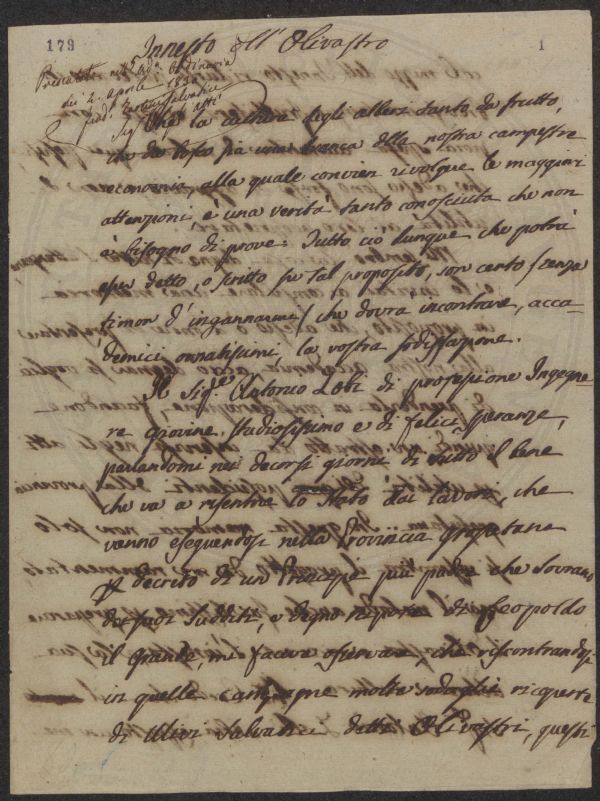 179
1
Innesto dell'Olivastro
Presentata nell' Ada. Ordinaria
dei 2. Aprile 18
Seg. degli atti
Che la cultura degli alberi tanto da frutto,
che da bosco sia una branca della nostra campestre
economia, alla quale convien rivolgere le maggiori
attenzioni è una verità tanto conosciuta che non
à bisogno di prove. Tutto ciò dunque che potrà
esser detto, o scritto su tal proposito, son certo /senza
timor d'ingannarmi/ che dovrà incontrare, acca-
demici ornatissimi, la vostra sodisfazione.
Il Sigre. Antonio Lobi di professione Ingegne-
re giovine studiosissimo e di felici speranze,
parlandomi nei decorsi giorni di tutto il bene
che va a risentire lo stato dai lavori, che
vanno eseguendosi nella Provincia Grossetana
decreto di un Principe più padre che sovrano
dei suoi sudditi, e degno nipote di Leopoldo
il Grande, mi faceva osservare, che riscontrandosi
in quelle campagne molte sodaglie ricoperte
di Ulivi salvatici detti Olivastri, questi